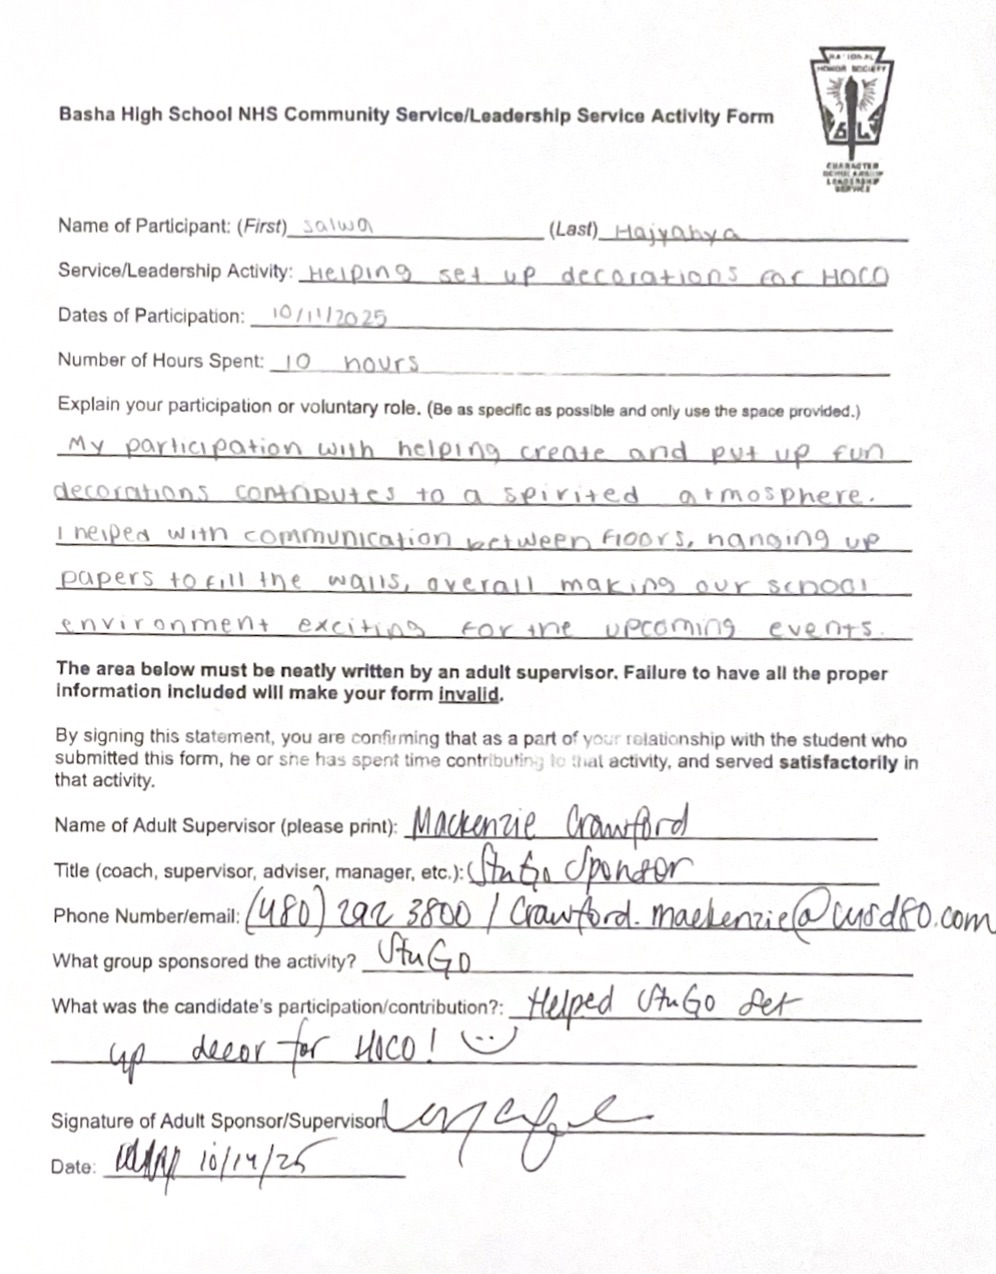 NATIONAL
HONOR SOCIETY
CHARACTER
SCHOLARSHIP
LEADERSHIP
SERVICE
Basha High School NHS Community Service/Leadership Service Activity Form
Name of Participant: (First) Salwa (Last) Hajyahya
Service/Leadership Activity: Helping set up decorations for HOCO
Dates of Participation: 10/11/2025
Number of Hours Spent: 10 hours
Explain your participation or voluntary role. (Be as specific as possible and only use the space provided.)
My participation with helping create and put up fun
decorations contributes to a spirited atmosphere.
I helped with communication between floors, hanging up
papers to fill the walls, overall making our school
environment exciting for the upcoming events.
The area below must be neatly written by an adult supervisor. Failure to have all the proper
information included will make your form invalid.
By signing this statement, you are confirming that as a part of your relationship with the student who
submitted this form, he or she has spent time contributing to that activity, and served satisfactorily in
that activity.
Name of Adult Supervisor (please print): Mackenzie Crawford
Title (coach, supervisor, adviser, manager, etc.): StuGo Sponsor
Phone Number/email: (480) 292 3800 / Crawford.mackenzie@cusd80.com
What group sponsored the activity? StuGo
What was the candidate's participation/contribution?: Helped StuGo set
up decor for HOCO!
Signature of Adult Sponsor/Supervisor
Date: 10/14/25